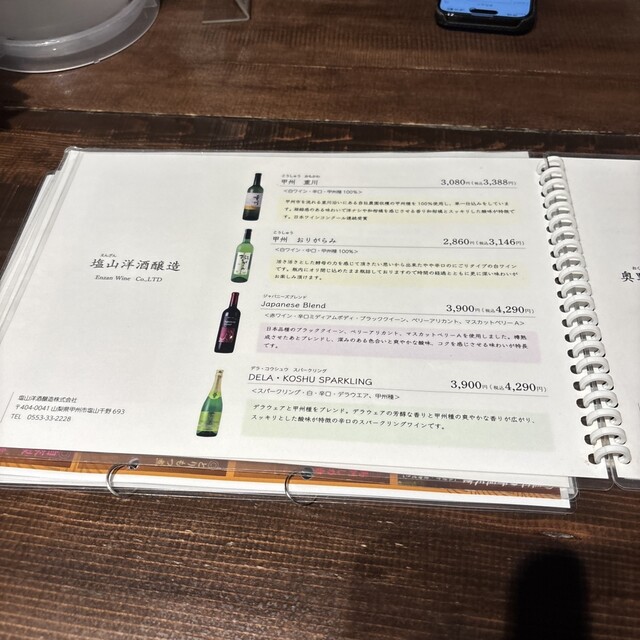 えんざん
塩山洋酒醸造
Enzan Wine Co.,LTD
塩山洋酒醸造株式会社
〒404-0041 山梨県甲州市塩山千野 693
TEL 0553-33-2228
甲州 重川
3,080円(税込3,388円)
<白ワイン・辛口・甲州種 100%>
こうしゅう
甲州 おりがらみ
2,860円(税込3,146円)
<白ワイン・辛口・甲州種 100%>
ジャパニーズブレンド
Japanese Blend
3,900円(税込4,290円)
<赤ワイン・辛口ミディアムボディ・ブラッククイーン、ベリーアリカント、マスカットベリーA>
日本品種のブラッククイーン、ベリーアリカント、マスカットベリーAを使用しました。樽熟
成させたあとブレンドし、深みのある色合いと爽やかな酸味、コクを感じさせる味わいが特長
です。
デラ・コウシュウ スパークリング
DELA・KOSHU SPARKLING
3,900円(税込4,290円)
<スパークリング・白・辛口・デラウエア、甲州種>
デラウェアと甲州種をブレンド。デラウェアの芳醇な香りと甲州種の爽やかな香りが広がり、
スッキリとした酸味が特徴の辛口のスパークリングワインです。
奥野